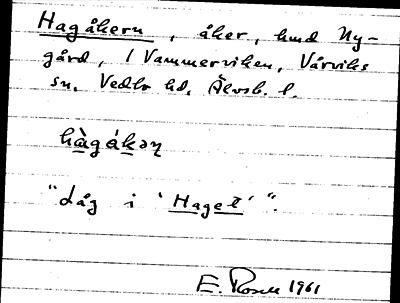 Hagåkern, åker, hmd Ny-
gård, 1 Vammerviken, Vårviks
sn, Vedbo hd, Älvsb. l.
hàgákəɳ
"låg i 'Haget'".
E. Rosell 1961